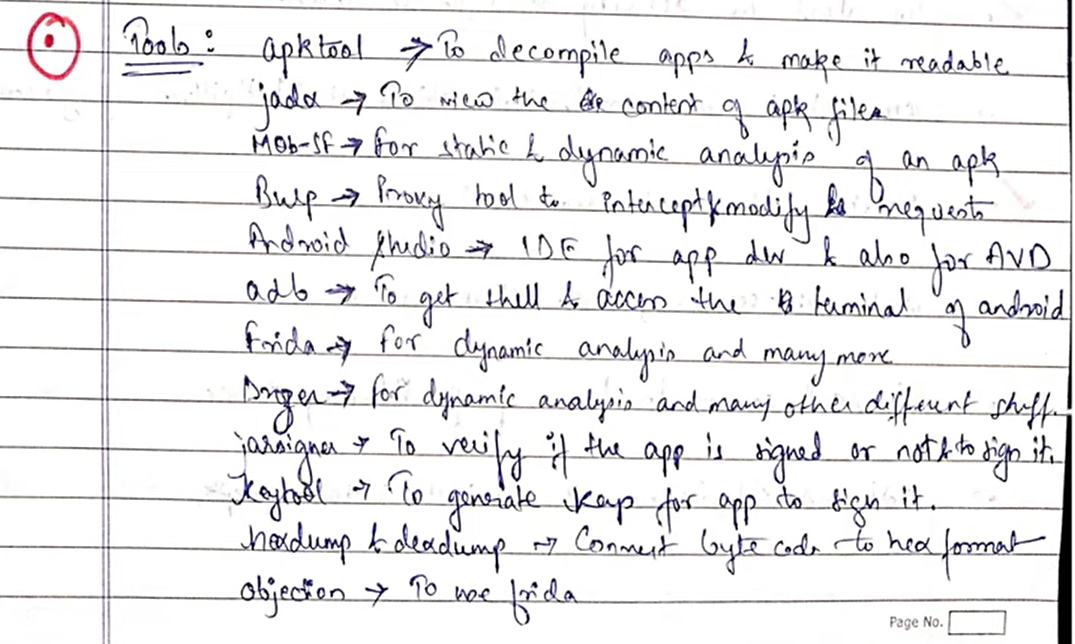 Tools: apktool → To decompile apps & make it readable
jadx → To view the content of apk files
Mob-SF → for static & dynamic analysis of an apk
Burp → Proxy tool to intercept & modify requests
Android studio → IDE for app dev & also for AVD
adb → To get shell & access the terminal of android
frida → for dynamic analysis and many more
→ for dynamic analysis and many other different stuff.
jarsigner → To verify if the app is signed or not & to sign it.
Keytool → To generate for app to sign it.
hexdump & dexdump → Convert byte code to hex format
objection → To use frida
Page No.